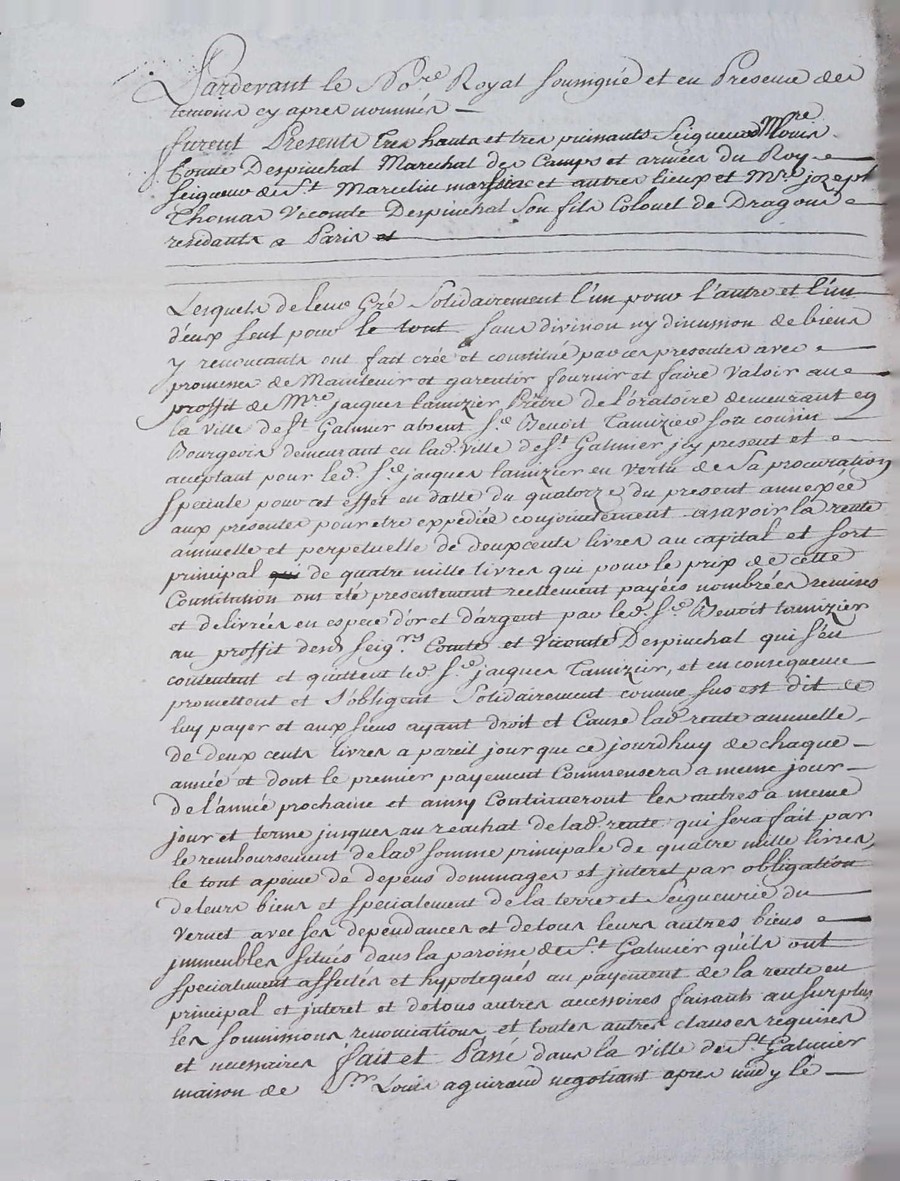 Pardevant le No.re Royal soussigné et en Presence des
temoins cy apres nommés
furent Presents tres hauts et tres puissants Seigneurs Mre Louis
Comte Despinchal Marechal des Camps et armées du Roy
seigneur de St. Marcelin marssiac et autres lieux et Mre jozeph
Thomas Vicomte Despinchal son fils Colonel de Dragons
residants a Paris et
Lesquels de leur Gré Solidairement l'un pour l'autre et l'un
d'eux seul pour le tout sans division ny discussion de biens
y renoncants ont fait crée et constitué par ces presentes avec
promesse de Maintenir et garentir fournir et faire Valoir au
proffit de Mre jacques tamizier Prêtre de l'oratoire demeurant en
la ville de St Galmier absent s.r Benoit Tamizier son cousin
Bourgeois demeurant en lad. ville de St. Galmier icy present et
acceptant pour led. s.r jacques tamizier en vertu de sa procuration
speciale pour cet effet en datte du quatorze du present annexée
aux presentes pour etre expediée conjointement asavoir la rente
annuelle et perpetuelle de deux cents livres au capital et sort
principal de quatre mille livres qui pour le prix de cette
Constitution ont été presentement reellement payées nombrées remises
et delivrées en espece d'or et d'argent par led. s.r Benoit tamizier
au proffit desd seigrs Comte et Vicomte Despinchal qui s'en
contentent et quittent led. s.r jacques Tamizier, et en consequence
promettent et s'obligent Solidairement comme sus est dit de
luy payer et aux siens ayant droit et Cause lad. rente annuelle
de deux cents livres a pareil jour que ce jourdhuy de chaque
année et dont le premier payement Commensera a meme jour
de l'année prochaine et ainsy Continueront les autres a meme
jour et terme jusques au reachat de lad. rente qui sera fait par
le remboursement de lad somme principale de quatre mille livres,
le tout apeine de depens dommages et interet par obligation
de leurs biens et specialement de la terre et Seigneurie du
Vernet avec ses dependances et de tous leurs autres biens
immeubles situés dans la paroisse de St. Galmier qu'ils ont
specialement affectés et hypotequés au payement de la rente en
principal et interet et de tous autres accessoires faisants au surplus
les soumissions renonciations et toutes autres clauses requises
et necessaires fait et Passé dans la ville de St. Galmier
maison de Sr Louis aguiraud negotiant apres midy le